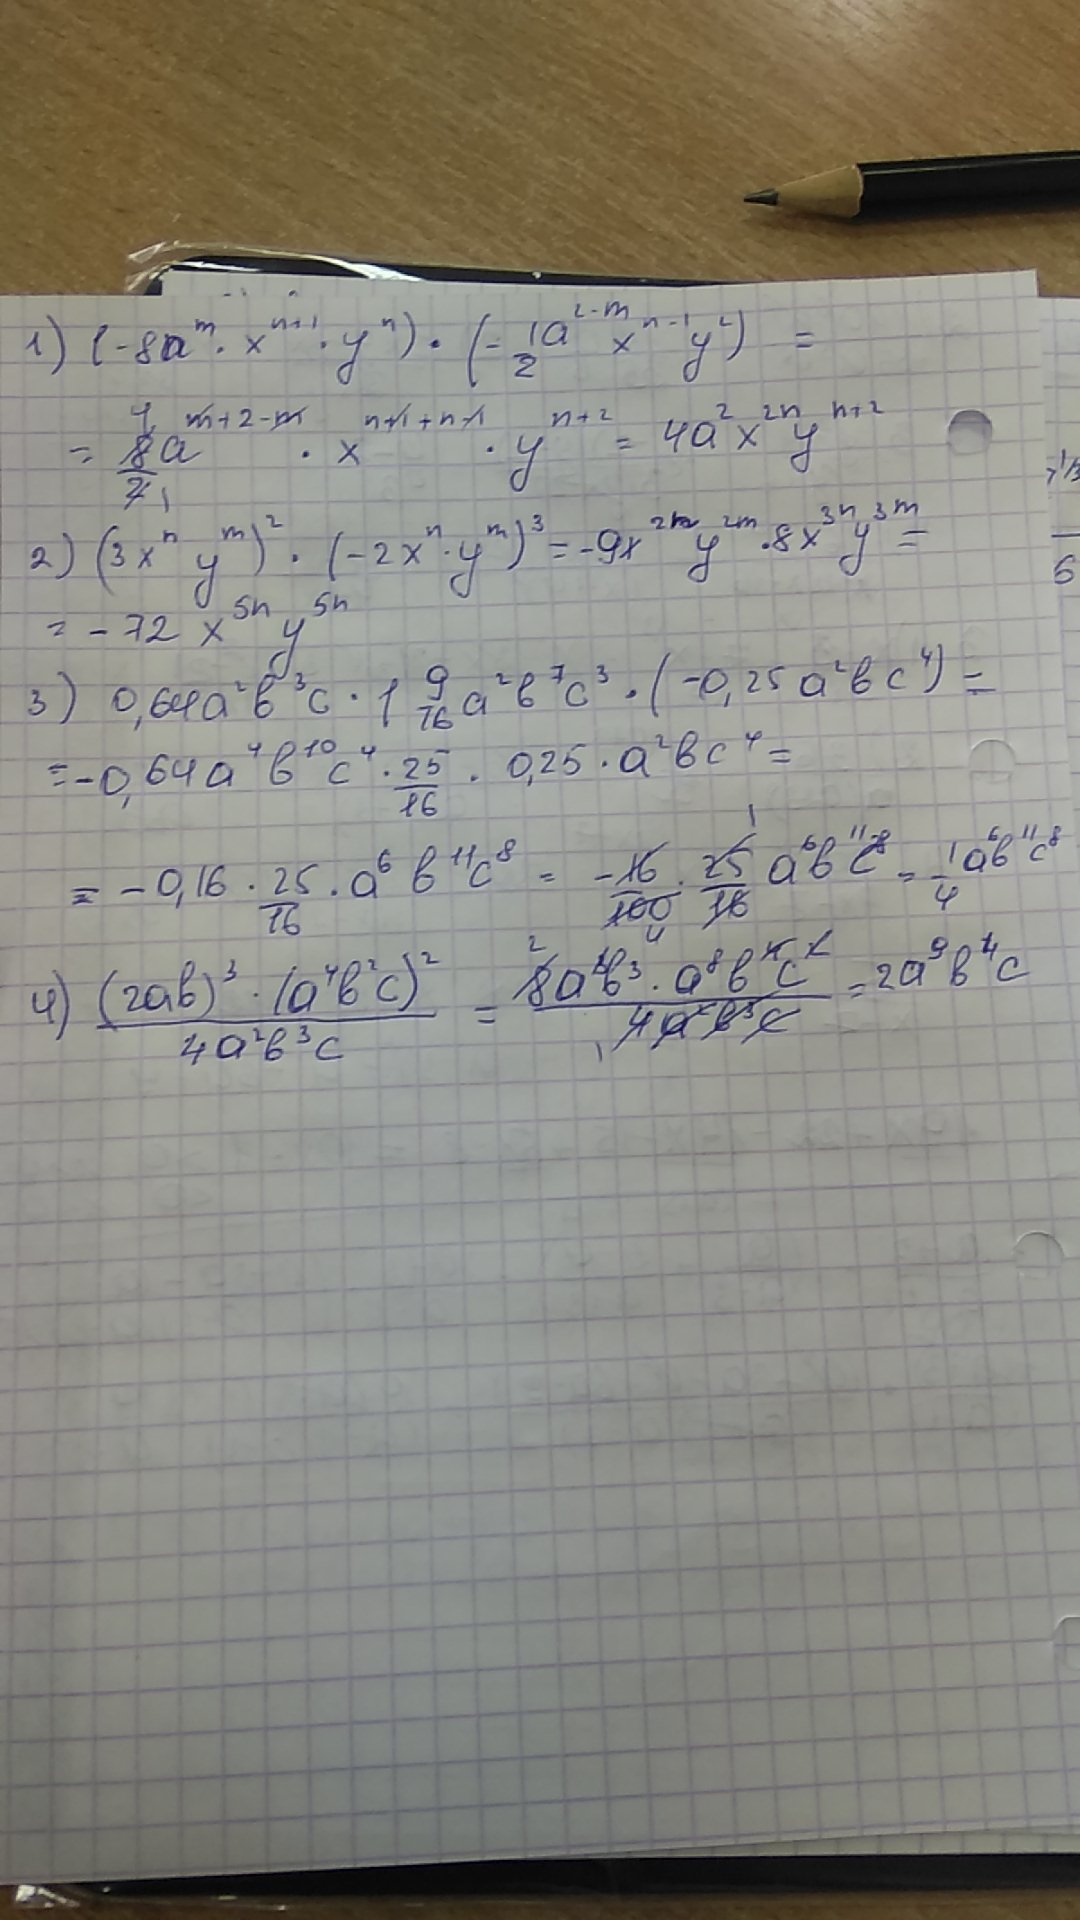 1) (-8a^m · x^{n+1} · y^n) · (-\frac{1}{2}a^{2-m} x^{n-1} y^2) =
= \frac{8}{2}a^{m+2-m} · x^{n+1+n-1} · y^{n+2} = 4a^2 x^{2n} y^{n+2}
2) (3x^n y^m)^2 · (-2x^n · y^m)^3 = -9x^{2n} y^{2m} · 8x^{3n} y^{3m} =
= -72 x^{5n} y^{5n}
3) 0,64a^2в^3c · 1\frac{9}{16}a^2в^7c^3 · (-0,25a^2вc^4) =
= -0,64a^4в^{10}c^4 · \frac{25}{16} · 0,25 · a^2вc^4 =
= -0,16 · \frac{25}{16} · a^6в^{11}c^8 = -\frac{16}{100} · \frac{25}{16} a^6в^{11}c^8 = -\frac{1}{4}a^6в^{11}c^8
4) \frac{(2aв)^3 · (a^4в^2c)^2}{4a^2в^3c} = \frac{8a^3в^3 · a^8в^4c^2}{4a^2в^3c} = 2a^9в^4c